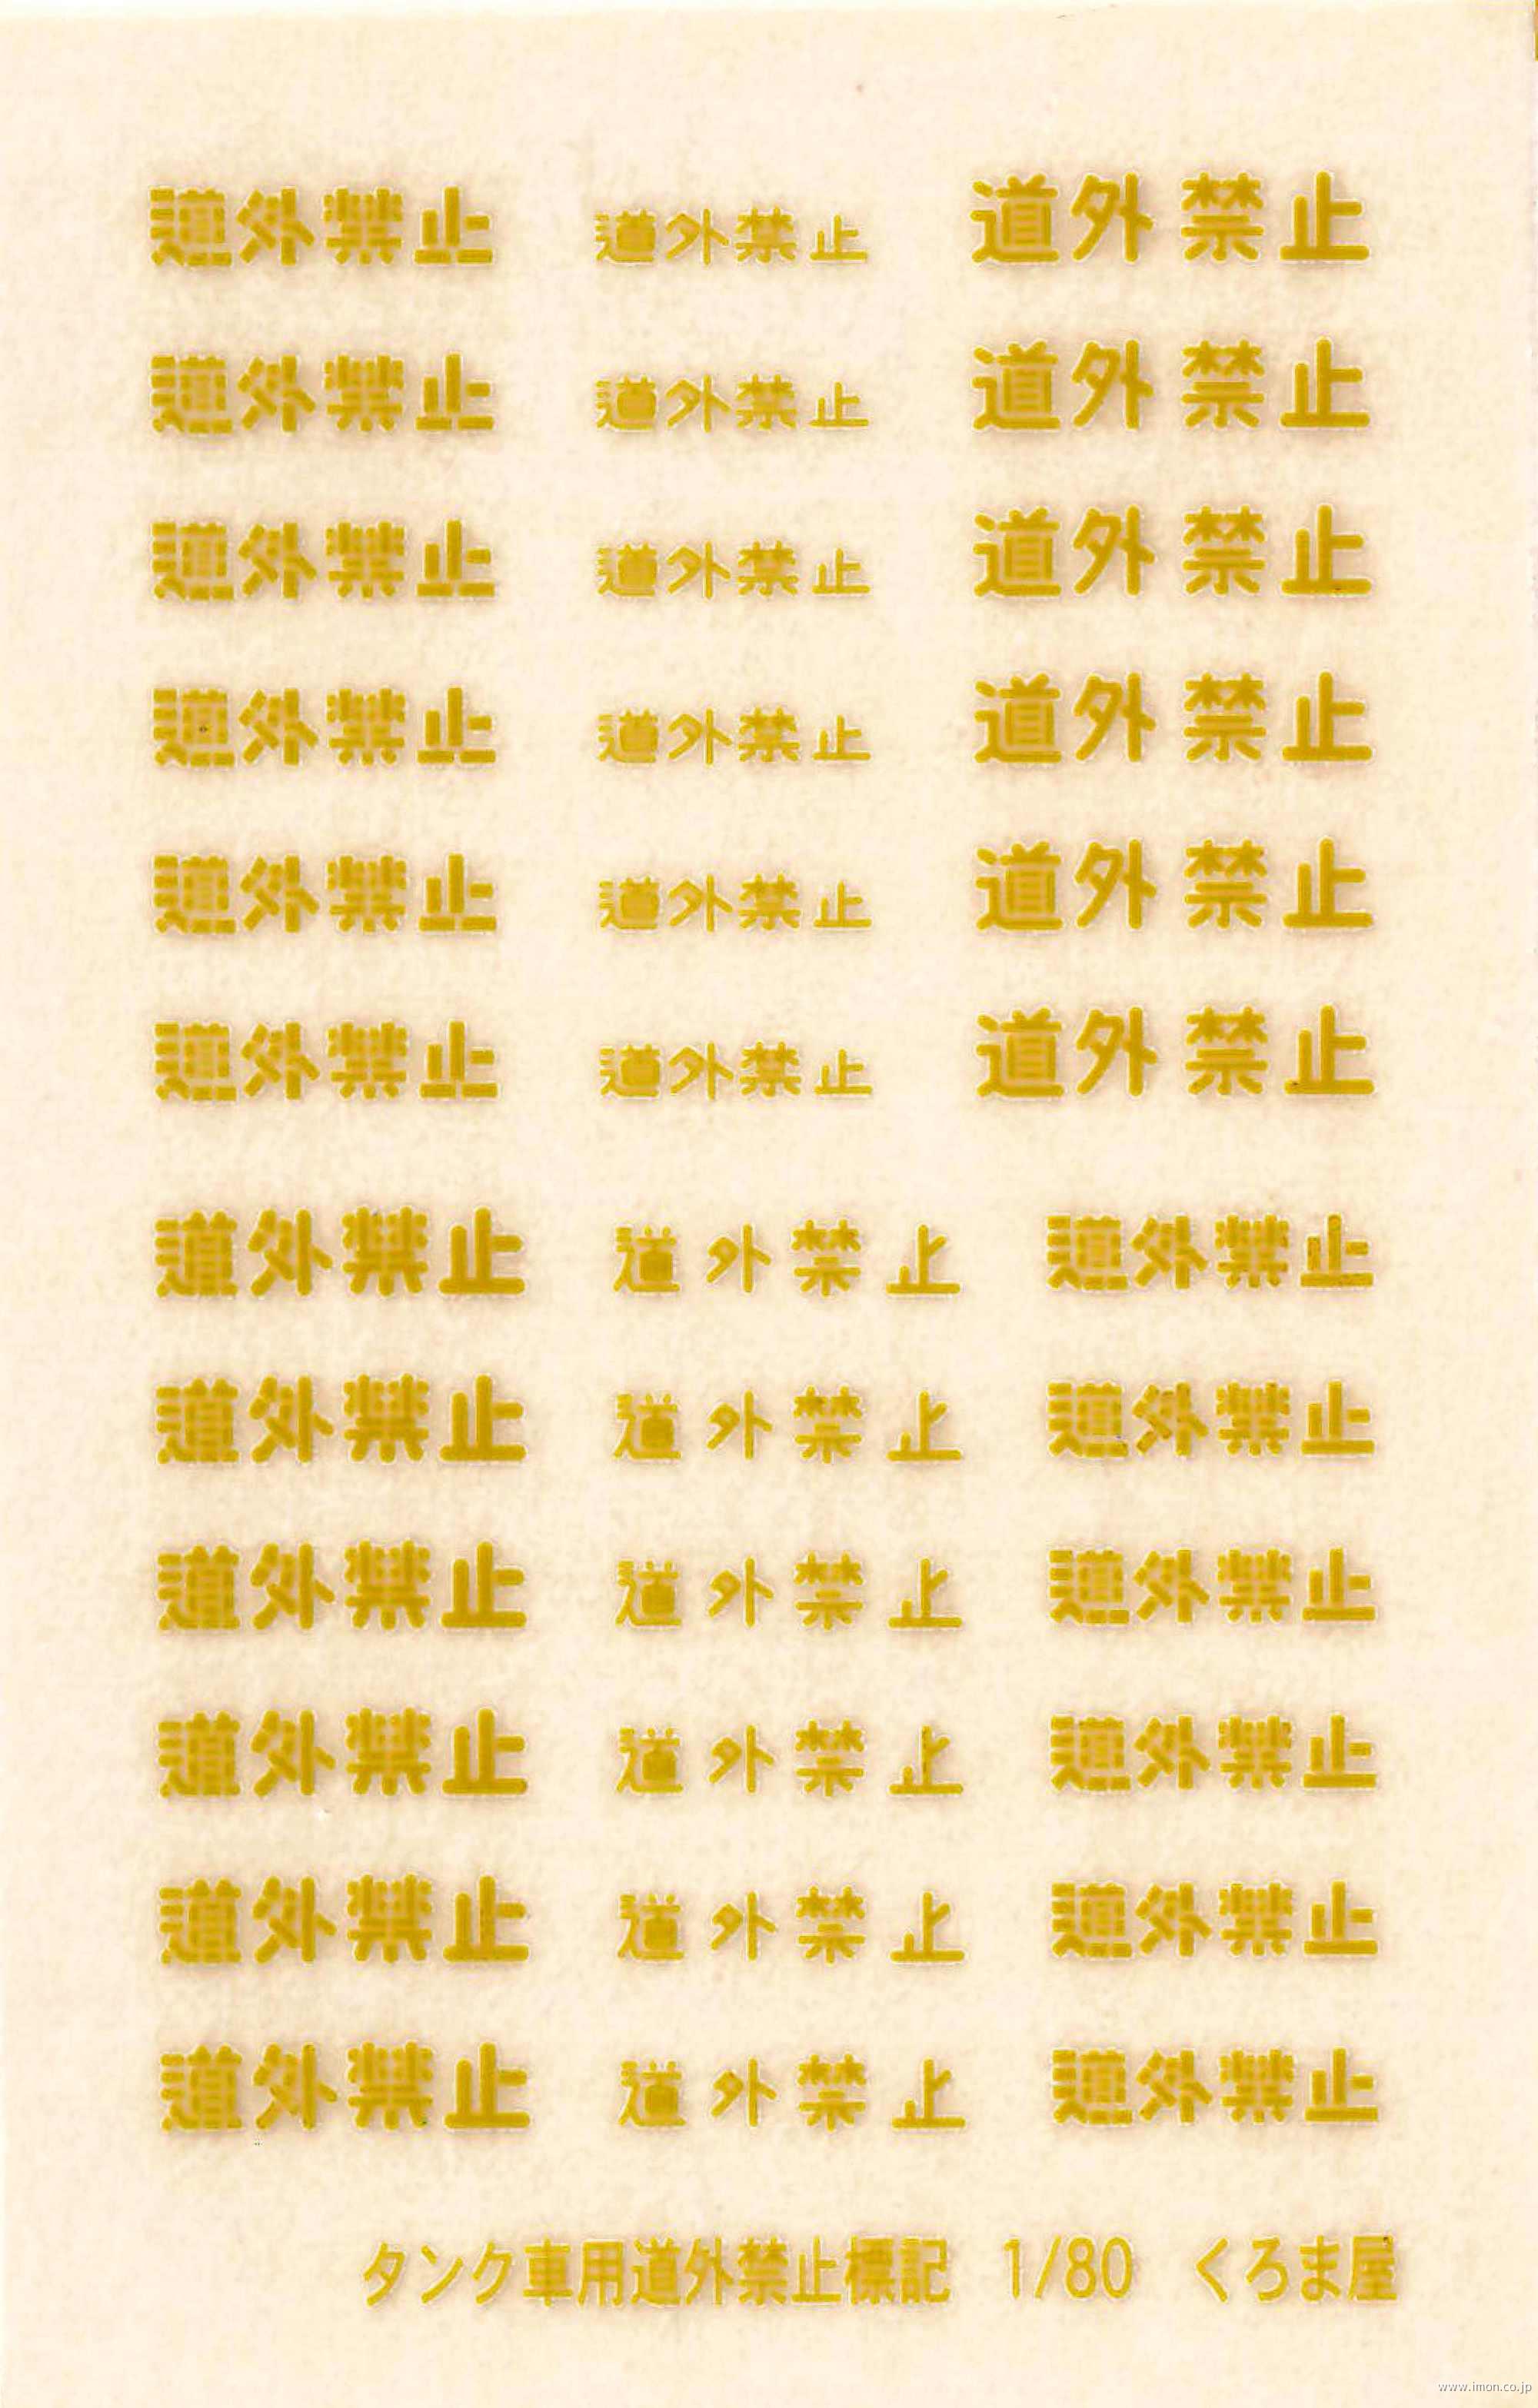 道外禁止 道外禁止 道外禁止
道外禁止 道外禁止 道外禁止
道外禁止 道外禁止 道外禁止
道外禁止 道外禁止 道外禁止
道外禁止 道外禁止 道外禁止
道外禁止 道外禁止 道外禁止
道外禁止 道外禁止 道外禁止
道外禁止 道外禁止 道外禁止
道外禁止 道外禁止 道外禁止
道外禁止 道外禁止 道外禁止
道外禁止 道外禁止 道外禁止
道外禁止 道外禁止 道外禁止
タンク車用道外禁止標記 1/80 くろま屋
www.imon.co.jp